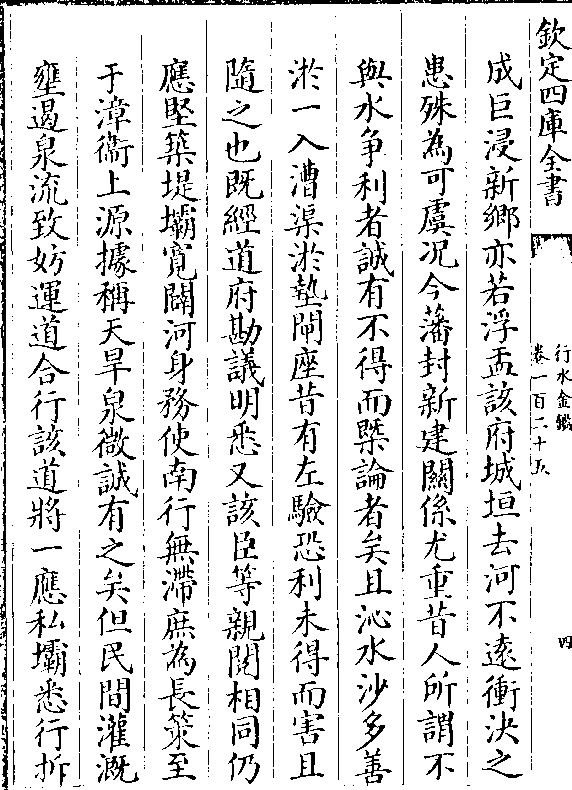 欽定四庫全書
行水金鑑
卷一百二十五
四
成巨浸新鄉亦若浮盂該府城垣去河不遠衝決之
患殊為可虞况今藩封新建關係尤重昔人所謂不
與水争利者誠有不得而槩論者矣且沁水沙多善
淤一入漕渠淤墊閘座昔有左驗恐利未得而害且
隨之也既經道府勘議明悉又該臣等親閲相同仍
應堅築堤壩寛闢河身務使南行無滯庶為長策至
于漳衞上源據稱天旱泉微誠有之矣但民間灌溉
壅遏泉流致妨運道合行該道將一應私壩悉行拆